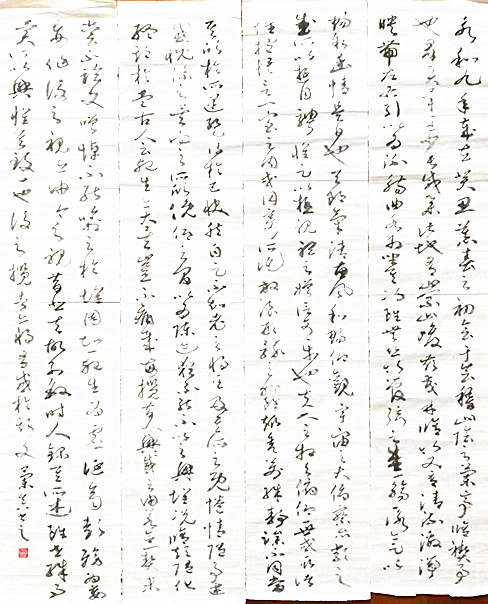 永和九年歲在癸丑暮春之初會于會稽山陰之蘭亭脩禊事
也群賢畢至少長咸集此地有崇山峻領茂林脩竹又有清流激湍
映帶左右引以為流觴曲水列坐其次雖無絲竹管弦之盛一觴一詠亦足以
暢敘幽情是日也天朗氣清惠風和暢仰觀宇宙之大俯察品類之
盛所以遊目騁懷足以極視聽之娛信可樂也夫人之相與俯仰一世或取諸
懷抱悟言一室之內或因寄所託放浪形骸之外雖趣舍萬殊靜躁不同當
其欣於所遇暫得於己快然自足不知老之將至及其所之既惓情隨事遷
感慨係之矣向之所欣俛仰之間以為陳迹猶不能不以之興懷況脩短隨化
終期於盡古人云死生亦大矣豈不痛哉每攬昔人興感之由若合一契未
嘗不臨文嗟悼不能喻之於懷固知一死生為虛誕齊彭殤為
妄作後之視今亦由今之視昔悲夫故列敘時人錄其所述雖世殊事
異所以興懷其致一也後之攬者亦將有感於斯文